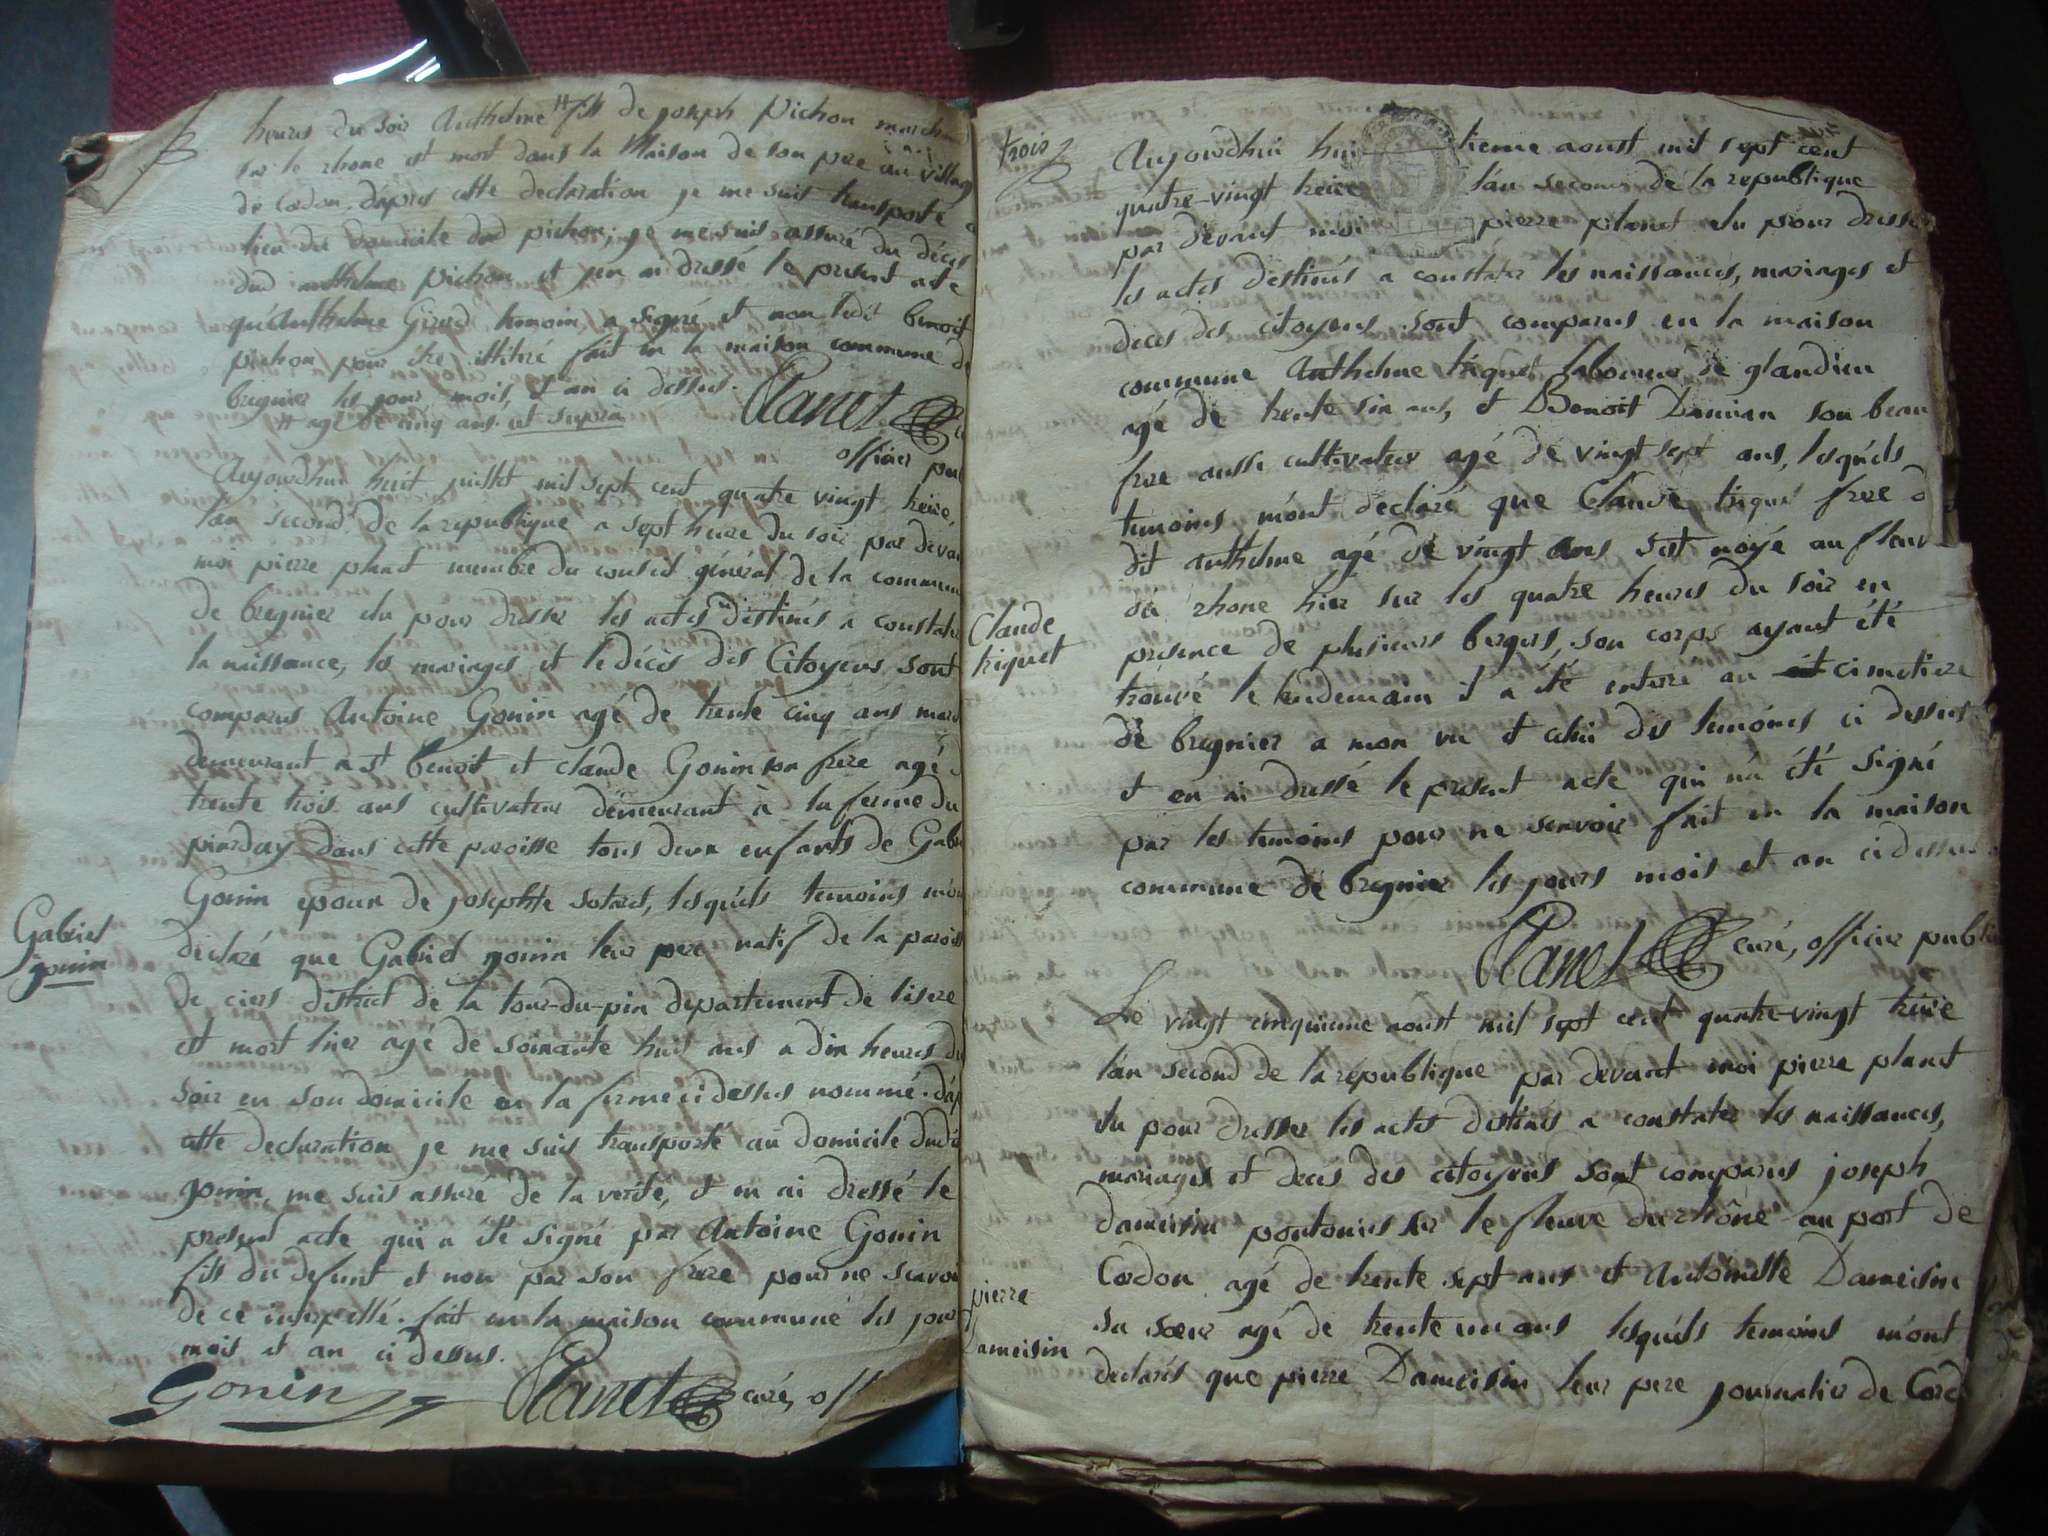 heures du soir Anthelme # fils de joseph Pichon march
sur le rhone est mort dans la Maison de son pere au village
de Cordon. d'apres cette declaration je me suis transporté a
lieu du Domicile dud pichon, je me suis assuré du décès
dud anthelme pichon et j'en ai dressé le present acte
qu'Anthelme Girod temoin a signé et non ledit benoit
pichon pour être illitéré fait en la maison commune de
bregnier les jour mois, et an ci dessus.
# agé de cinq ans. ut supra
Planet
officier pu
Aujourdhui huit juillet mil sept cent quatre vingt treize,
l'an second de la republique a sept heure du soir par devan
moi pierre planet membre du conseil général de la commun
de bregnier elu pour dresser les actes destinés a constater
la naissance, les mariages et le décès des Citoyens sont
comparus Antoine Gonin agé de trente cinq ans mar
demeurant a st benoit et claude Gonin son frere agé
trente trois ans cultivateur demeurant à la ferme du
dans cette paroisse tous deux enfants de Gabr
Gonin epoux de josephte lesquels temoins m'on
Gabriel
gonin
declaré que Gabriel gonin leur pere natif de la paroiss
de ciers district de la tour-du-pin departement de l'isere
est mort hier agé de soixante huit ans a dix heures du
soir en son domicile en la ferme ci dessus nommé. d'ap
cette declaration je me suis transporté au domicile dud
gonin, me suis assuré de la verité, et en ai dressé le
present acte qui a été signé par Antoine Gonin
fils du defunt et non par son frere pour ne scavoi
de ce interpellé. fait en la maison commune les jour
mois et an ci dessus.
Gonin Planet curé, off
trois
Aujourdhui hui tieme aoust mil sept cent
quatre-vingt treize l'an second de la republique
par devant moi pierre planet elu pour dresse
les actes destinés a constater les naissances, mariages et
deces des citoyens sont comparus en la maison
commune Anthelme triquet laboureur de glandieu
agé de trente six ans, et Benoit Damian son beau
frere aussi cultivateur agé de vingt sept ans, lesquels
temoins m'ont declaré que Claude triquet frere d
dit anthelme agé de vingt ans s'est noyé au fleuv
du rhone hier sur les quatre heures du soir en
Claude
triquet
presence de plusieurs bergers, son corps ayant été
trouvé le lendemain il a été enterré au cimetiere
de bregnier a mon vu et celui des temoins ci dessus
et en ai dressé le present acte qui n'a été signé
par les temoins pour ne scavoir fait en la maison
commune de bregnier les jours mois et an ci dessus
Planet curé, officier publi
Le vingt cinquieme aoust mil sept cent quatre-vingt treize
l'an second de la republique par devant moi pierre planet
elu pour dresser les actes destinés a constater les naissances,
mariages et deces des citoyens sont comparus joseph
Dameisin pontonier sur le fleuve du rhône au port de
Cordon agé de trente sept ans et Antoinette Dameisin
pierre
Dameisin
sa soeur agé de trente un ans lesquels temoins m'ont
declarés que pierre Dameisin leur pere journalier de Cord